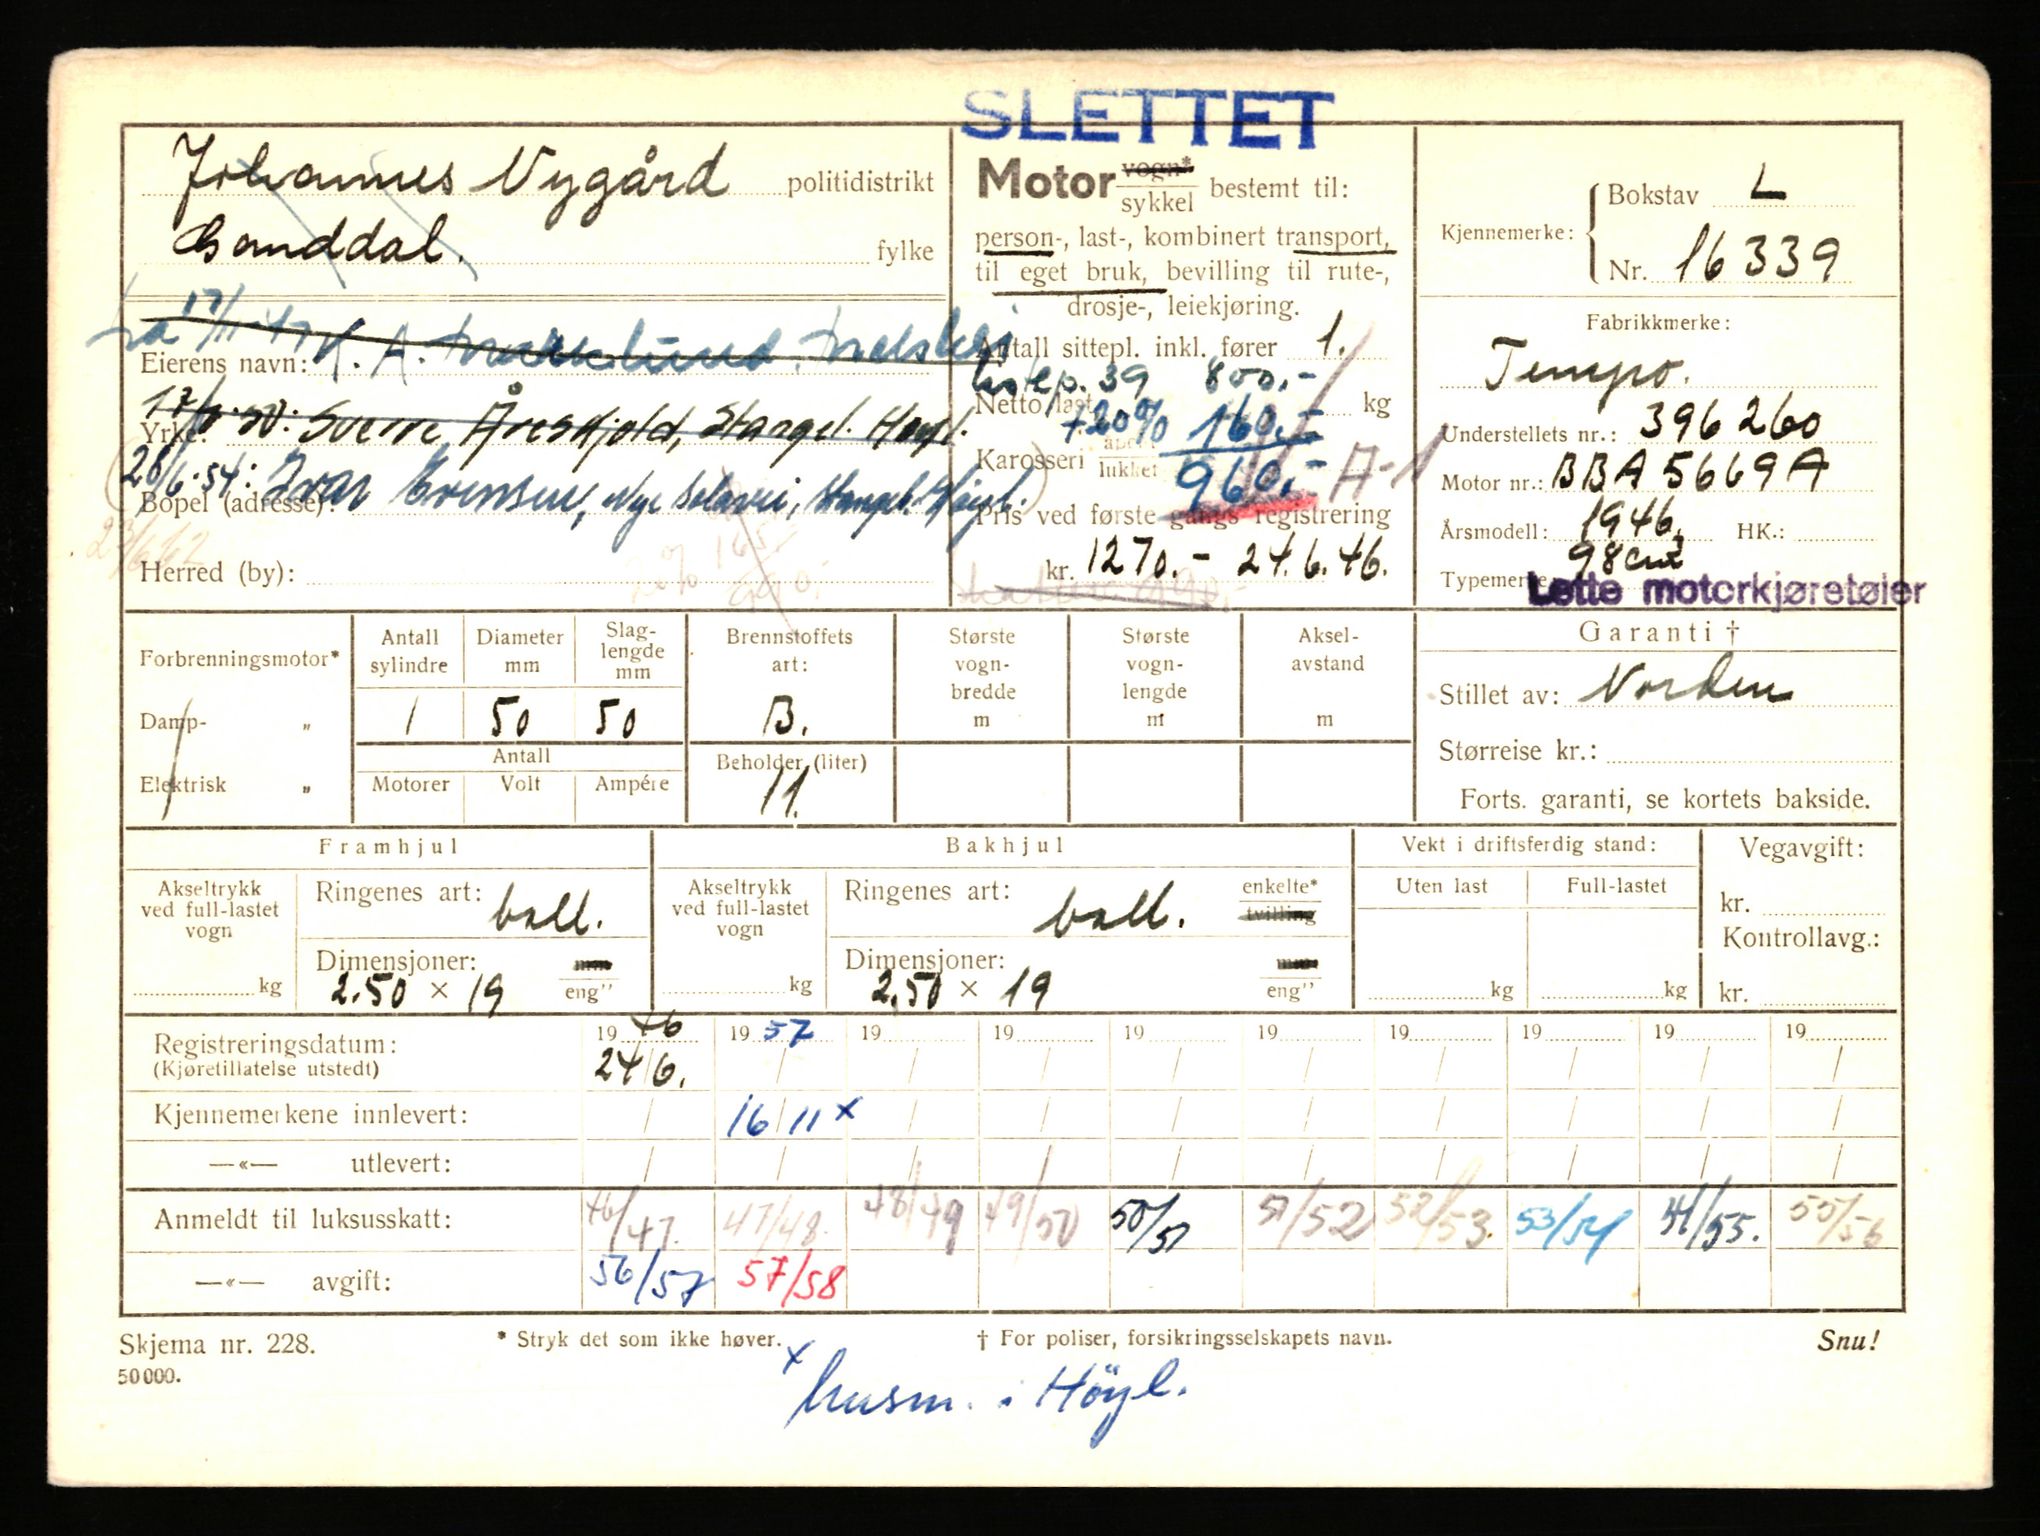 SLETTET
Johannes Nygård politidistrikt
Ganddal. fylke
fra 17/11-47 K. A.
Eierens navn:
17/ 50: Sverre Åreskjold, Stangel. Høyl.
Yrke:
28/6-54: Ivar Evensen, Nye Solavei, Stangel. Høyl.
Bopel (adresse):
23/6 62
Herred (by):
20% 165
990.-
Motor vogn*
sykkel bestemt til:
person-, last-, kombinert transport,
til eget bruk, bevilling til rute-,
drosje-, leiekjøring.
Antall sittepl. inkl. fører 1.
listep. 39 800.-
Netto last kg
+20% 160.-
Karosseri åpent
lukket 960.- A-1
Pris ved første gangs registrering
kr. 1270.- 24.6.46.
990.-
Kjennemerke: Bokstav L
Nr. 16339
Fabrikkmerke:
Tempo.
Understellets nr.: 396260
Motor nr.: BBA5669A
Årsmodell: 1946. HK.:
98 cm2
Typemerke: Lette motorkjøretøier
Forbrenningsmotor*
Damp- „
Elektrisk „
Antall sylindre
Diameter mm
Slag-lengde mm
1 50 50
Antall
Motorer Volt Ampére
Brennstoffets art:
B.
Beholder (liter)
11.
Største vogn-bredde m
Største vogn-lengde m
Aksel-avstand m
Garanti †
Stillet av: Norden
Størreise kr.:
Forts. garanti, se kortets bakside.
Framhjul
Akseltrykk ved full-lastet vogn
kg
Ringenes art: ball.
Dimensjoner: mm
2.50 × 19 eng"
Bakhjul
Akseltrykk ved full-lastet vogn
kg
Ringenes art: ball. enkelte*
tvilling
Dimensjoner: mm
2.50 × 19 eng"
Vekt i driftsferdig stand:
Uten last Full-lastet
kg kg
Vegavgift:
kr.
Kontrollavg.:
kr.
Registreringsdatum: 19 46 19 57 19 19 19 19 19 19 19 19
(Kjøretillatelse utstedt) 24/6. / / / / / / / / /
Kjennemerkene innlevert: / 16/11 x / / / / / / / /
—«— utlevert: / / / / / / / / / /
Anmeldt til luksusskatt: 46/47. 47/48. 48/49 49/50 50/51 51/52 52/53. 53/54 54/55. 55/56
—«— avgift: 56/57 57/58
Skjema nr. 228. * Stryk det som ikke høver. † For poliser, forsikringsselskapets navn. Snu!
50000.
x husm. i Höyl.